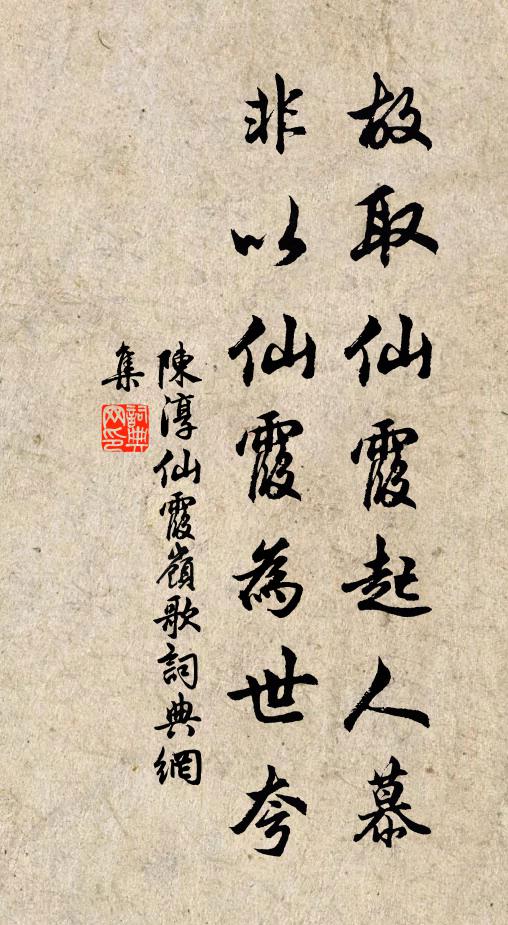 故取仙霞起人慕
非以仙霞為世夸
陳淳仙霞嶺歌詞典網
集
詞典
网印